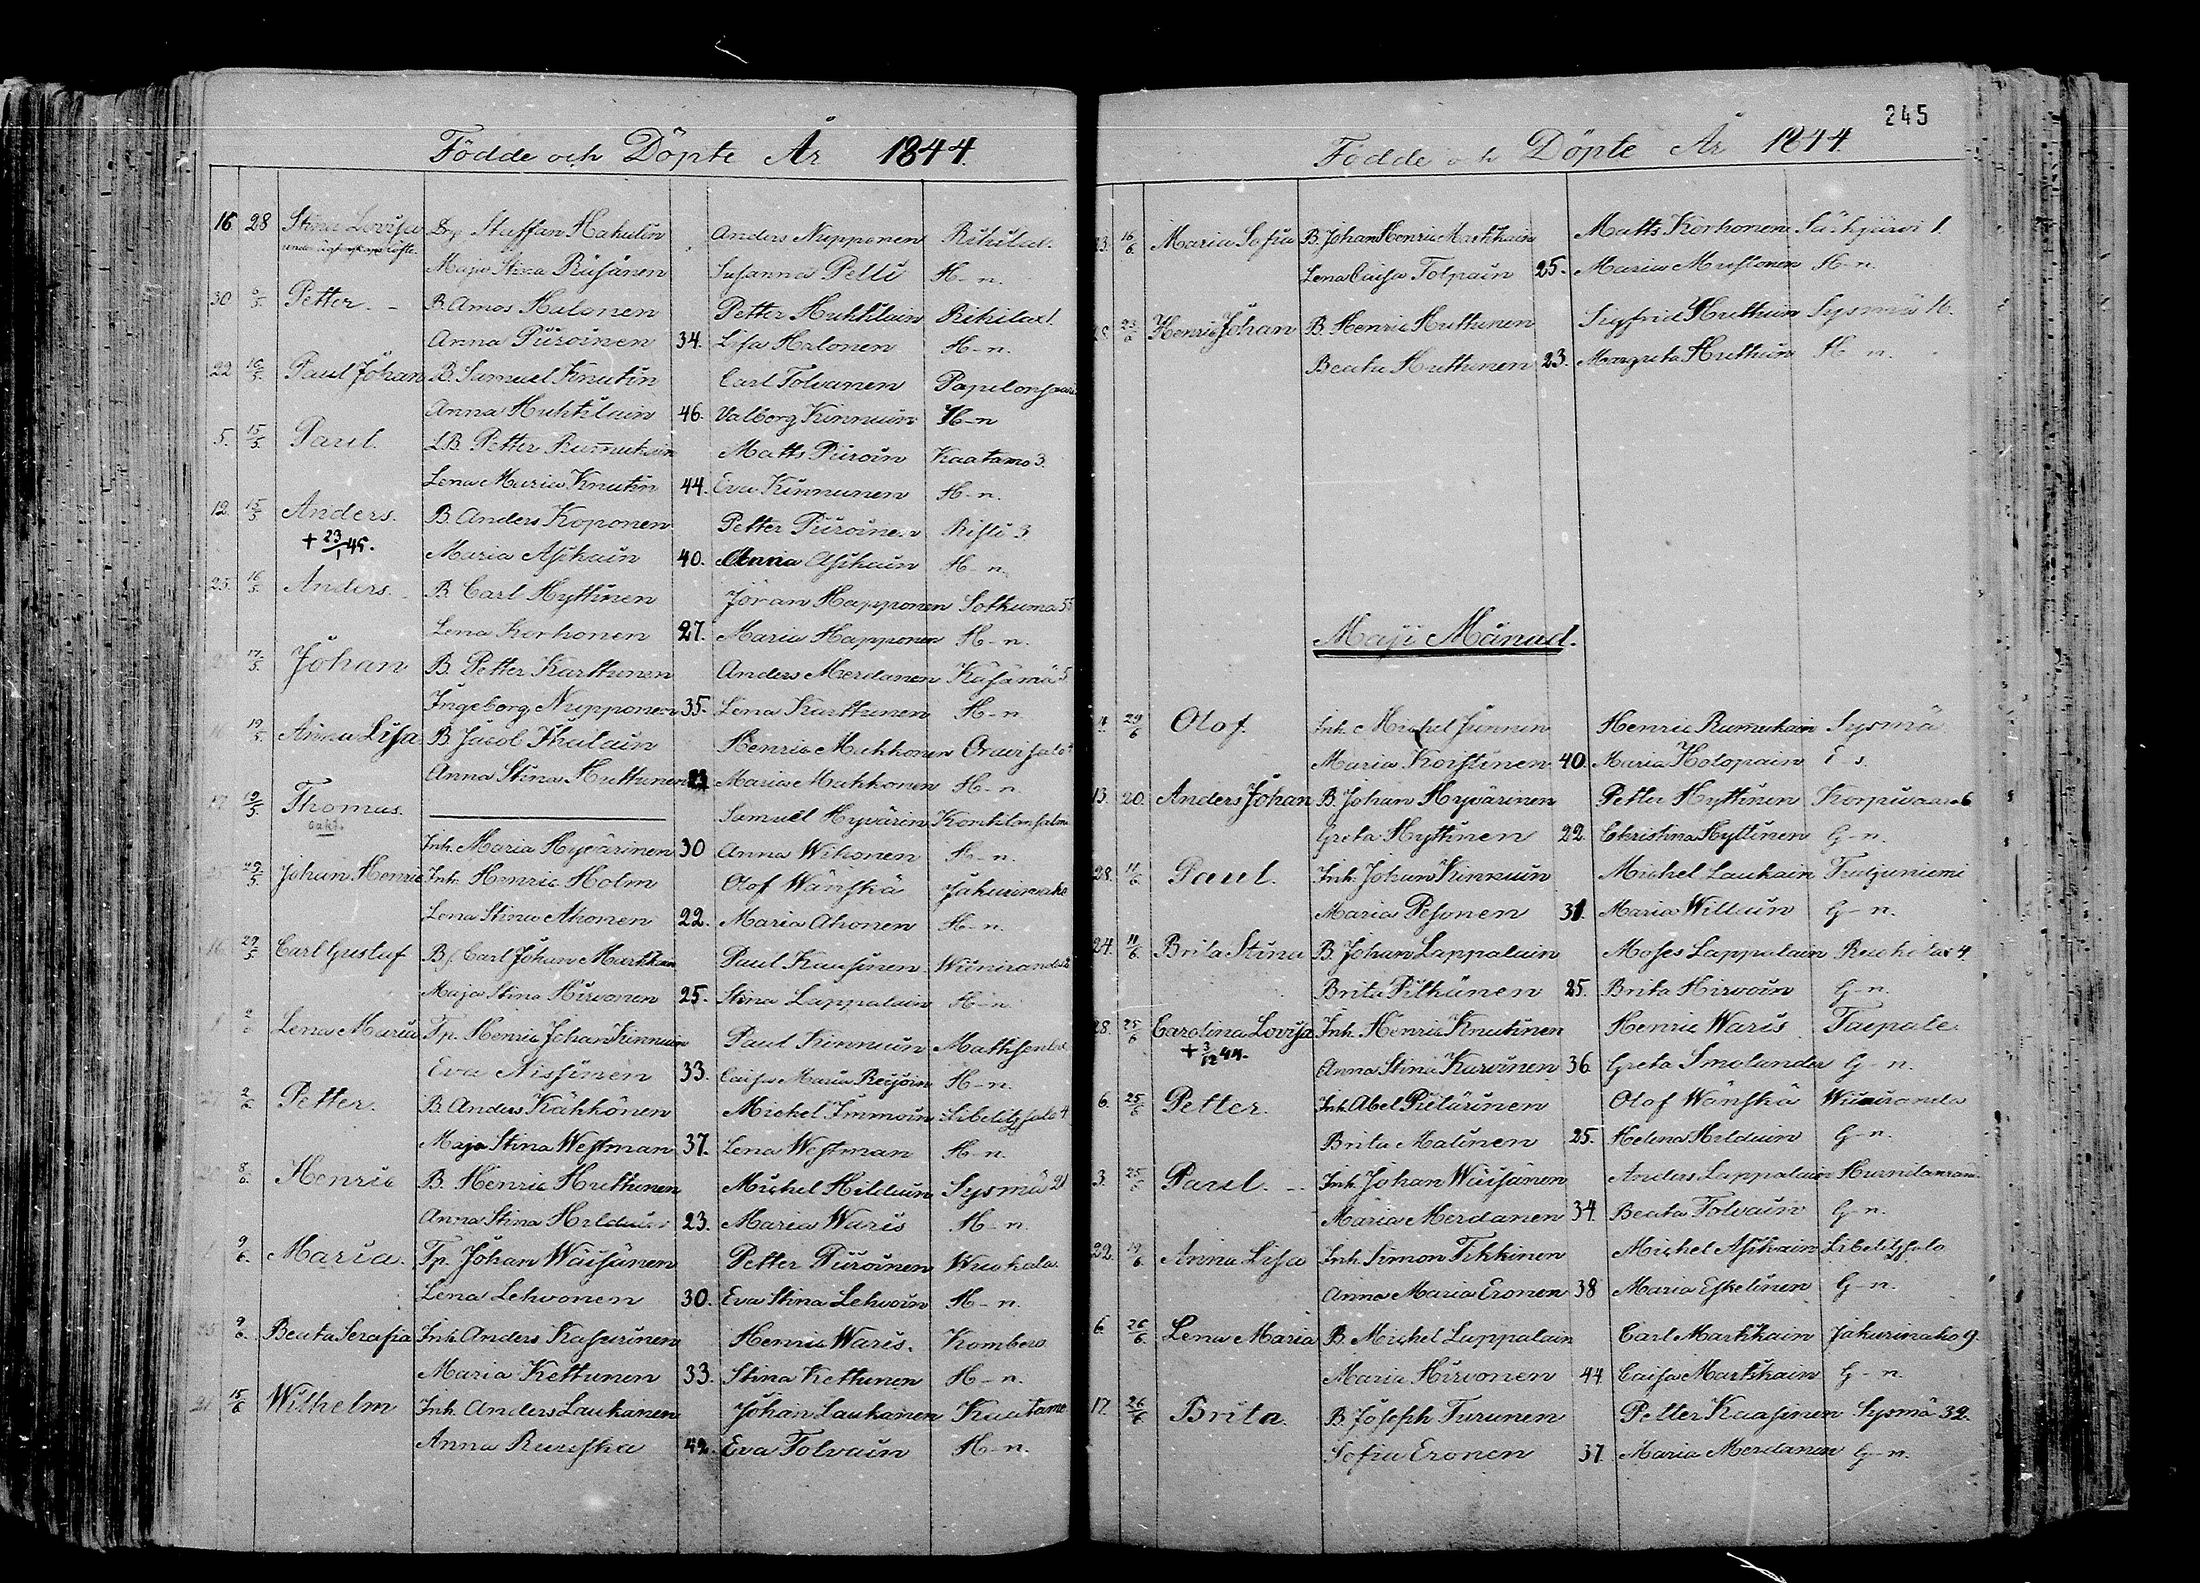 Födde och Döpte År 1844.
16 28 Stina Lovisa Drg Staffan Hakulin Anders Nupponen Rikilax.
Maja Stina Räisänen Susanna Pelli H-n.
30 Petter. B. Amos Halonen Petter Huhtilain Rikilax 1.
Anna Piiroinen 34. Lisa Halonen H-n.
22 16/5. Paul Johan B. Samuel Knutin Carl Tolvanen
Anna Huhtilain 46. Valborg Kinnuin H-n
5. 15/5. Paul. LB. Petter Rumukain Matts Piiroin Kaatamo 3.
Lena Maria Knutin 44. Eva Kinnunen H-n.
12. 15/5 Anders. B. Anders Koponen Petter Piiroinen Risti 3
+ 23/1 45. Maria Asikain 40. Anna Asikain H-n.
25. 16/5. Anders. B. Carl Hyttinen Jöran Happonen Sotkuma 55
Lena Korhonen 27. Maria Happonen H-n.
17/5. Johan B. Petter Karttunen Anders Merdanen Küsämä 5
Ingeborg Nupponen 35. Lena Karttunen H-n.
19/5. Anna Lisa B. Jacob Ikalain Henric Mukkonen Oravisalo 4
Anna Stina Huttunen 23 Maria Mukkonen H-n.
17. 19/5. Thomas. Samuel Hyvärin
oäkt. Inh. Maria Hyvärinen 30 Anna Wihonen H-n.
25 29/5. Johan Henric Inh. Henric Holm Olof Wänskä Jakunvaho
Lena Stina Ahonen 22. Maria Ahonen H-n.
16 29/5 Carl Gustaf B/ Carl Johan Markkan Paul Kausinen Wiiniranda 2
Maja Stina Hirvonen 25. Stina Lappalain H-n.
Lena Maria Tp. Henric Johan Kinnuin Paul Kinnuin
Eva Nissinen 33. Caisa Maria Reijoin H-n.
2/6. Petter. B. Anders Kähkönen Michel Immoin Libelitzsalo 4
Maja Stina Westman 37. Lena Westman H-n.
8/6. Henric B. Henric Huttunen Michel Hilduin Sysmä 21
Anna Stina Hilduin 23. Maria Waris H-n.
9/6. Maria. Tp. Johan Wäisänen Petter Piiroinen Wuokala
Lena Lehvonen 30. Eva Stina Lehvoin H-n.
25 9/6. Beata Serafia Inh. Anders Kasurinen Henric Waris. Kombero
Maria Kettunen 33. Stina Kettunen H-n.
21 15/6 Wilhelm Inh. Anders Laukanen Johan Laukanen Kaatamo
Anna Ruuska 42. Eva Tolvain H-n.
245
Födde och Döpte År 1844.
23. 16/6. Maria Sofia B. Johan Henric Markkain Matts Korhonen Särkjärvi 1.
Lena Caisa Tolpain 25. Maria Mustonen H-n.
23/6 Henric Johan B. Henric Huttunen Sigfrid Huttuin Sysmä 16.
Beata Huttunen 23. Margreta Huttuin H-n.
Maji Månad.
4. 29/6 Olof. Inh. Michel Junnin Henric Rumukain Sysmä
Maria Koistinen 40. Maria Holopain E-s.
13. 20. Anders Johan B. Johan Hyvärinen Petter Hyttinen Korpivaara 6
Greta Hyttinen 22. Christina Hyttinen G-n.
28. 11/6. Paul. Inh. Johan Kinnuin Michel Laukain Trutjuniemi
Maria Pesonen 31. Maria Willain G-n.
24. 11/6. Brita Stina B. Johan Lappalain Moses Lappalain Ruokolax 4.
Brita Pitkänen 25. Brita Hirvoin G-n.
28. 25/6 Carolina Lovisa Inh. Henric Knutinen Henric Waris Taipale
+ 3/12 44. Anna Stina Karvinen 36. Greta Smolander G-n.
6. 25/6 Petter. Inh. Abel Pietärinen Olof Wänskä Wiiniranda
Brita Malinen 25. Helena Hilduin G-n.
3. 25/6 Paul. Inh. Johan Wäisänen Anders Lappalain
Maria Merdanen 34 Beata Tolvain G-n.
22. 19/6. Anna Lisa Inh. Simon Tikkinen Michel Asikain Libelitzsalo
Anna Maria Eronen 38 Maria Eskelinen G-n.
6. 26/6. Lena Maria B. Michel Lappalain Carl Markkain Jakurinaho 9.
Maria Hirvonen 44 Caisa Markkain G-n.
17. 26/6 Brita. B. Joseph Turunen Petter Kaasinen Sysmä 32.
Sofia Eronen 37 Maria Merdanen G-n.